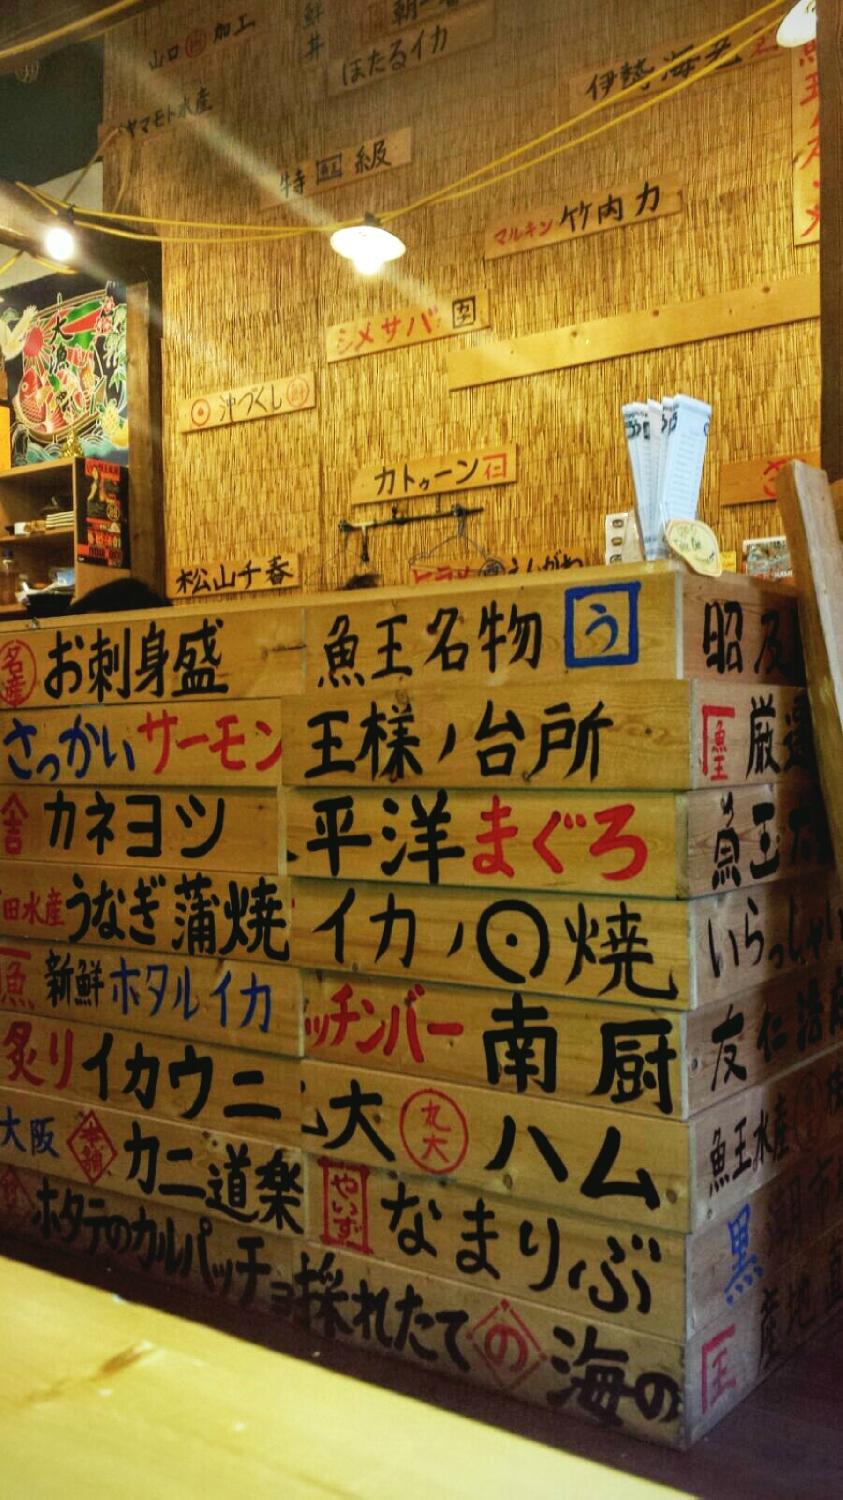 山口 加工
鮮丼
朝一番
ほたるイカ
伊勢海老
ヤマモト水産
特級
マルキン 竹内力
シメサバ
沖づくし
大漁
カトゥーン 仁
松山千春
ヒラメ えんがわ
名産 お刺身盛
魚王名物 う
さっかいサーモン
王様ノ台所
厳選
カネヨツ
平洋まぐろ
田水産 うなぎ蒲焼
イカノ 焼
いらっしゃい
魚 新鮮ホタルイカ
ッチンバー 南 厨
友仁
炙りイカウニ
大 丸大 ハム
魚王水産
大阪 カニ道楽
やいず なまりぶ
黒
ホタテのカルパッチョ
採れたて の 海の
王 産地直